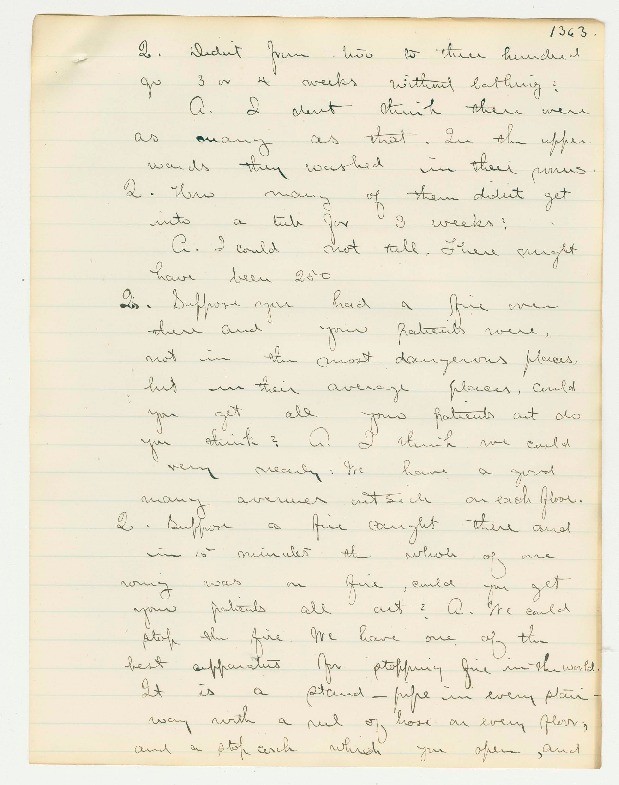 1363.
Q. Didn't from two to three hundred
go 3 or 4 weeks without bathing?
A. I don't think there were
as many as that. In the upper
wards they washed in their rooms.
Q. How many of them didn't get
into a tub for 3 weeks?
A. I could not tell. There might
have been 250
Q. Suppose you had a fire over
there and your patients were,
not in the most dangerous places,
but in their average places, could
you get all your patients out do
you think? A. I think we could
very nearly. We have a good
many avenues outside on each floor.
Q. Suppose a fire caught there and
in 15 minutes the whole of one
wing was on fire, could you get
your patients all out? A. We could
stop the fire. We have one of the
best apparatus for stopping fire in the world.
It is a stand-pipe in every stair-
way with a reel of hose on every floor,
and a stop cock which you open, and